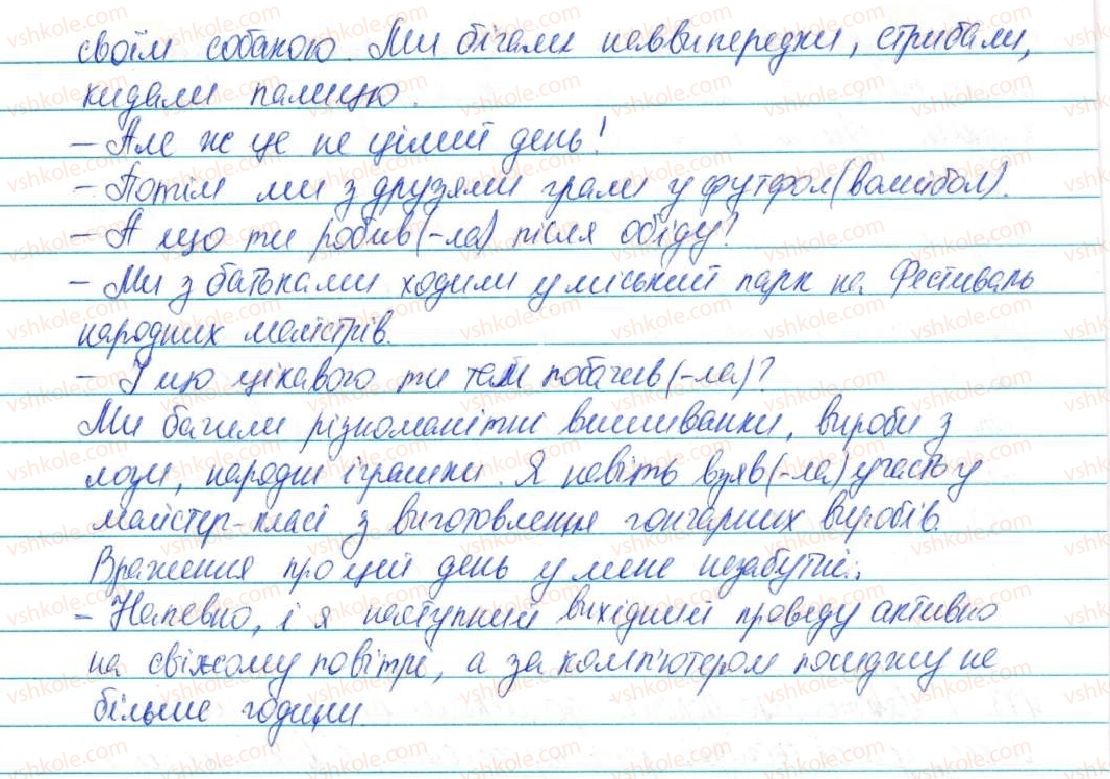 своїм собакою. Ми бігали наввипередки, стрибали,
кидали палицю.
– Але ж це не цілий день!
– Потім ми з друзями грали у футбол(волейбол).
– А що ти робив(-ла) після обіду?
– Ми з батьками ходили у міський парк на Фестиваль
народних майстрів.
– І що цікавого ти там побачив(-ла)?
Ми бачили різноманітні вишиванки, вироби з
лози, народні іграшки. Я навіть взяв(-ла) участь у
майстер-класі з виготовлення гончарних виробів.
Враження про цей день у мене незабутні.
– Напевно, і я наступний вихідний проведу активно
на свіжому повітрі, а за комп'ютером посиджу не
більше години.